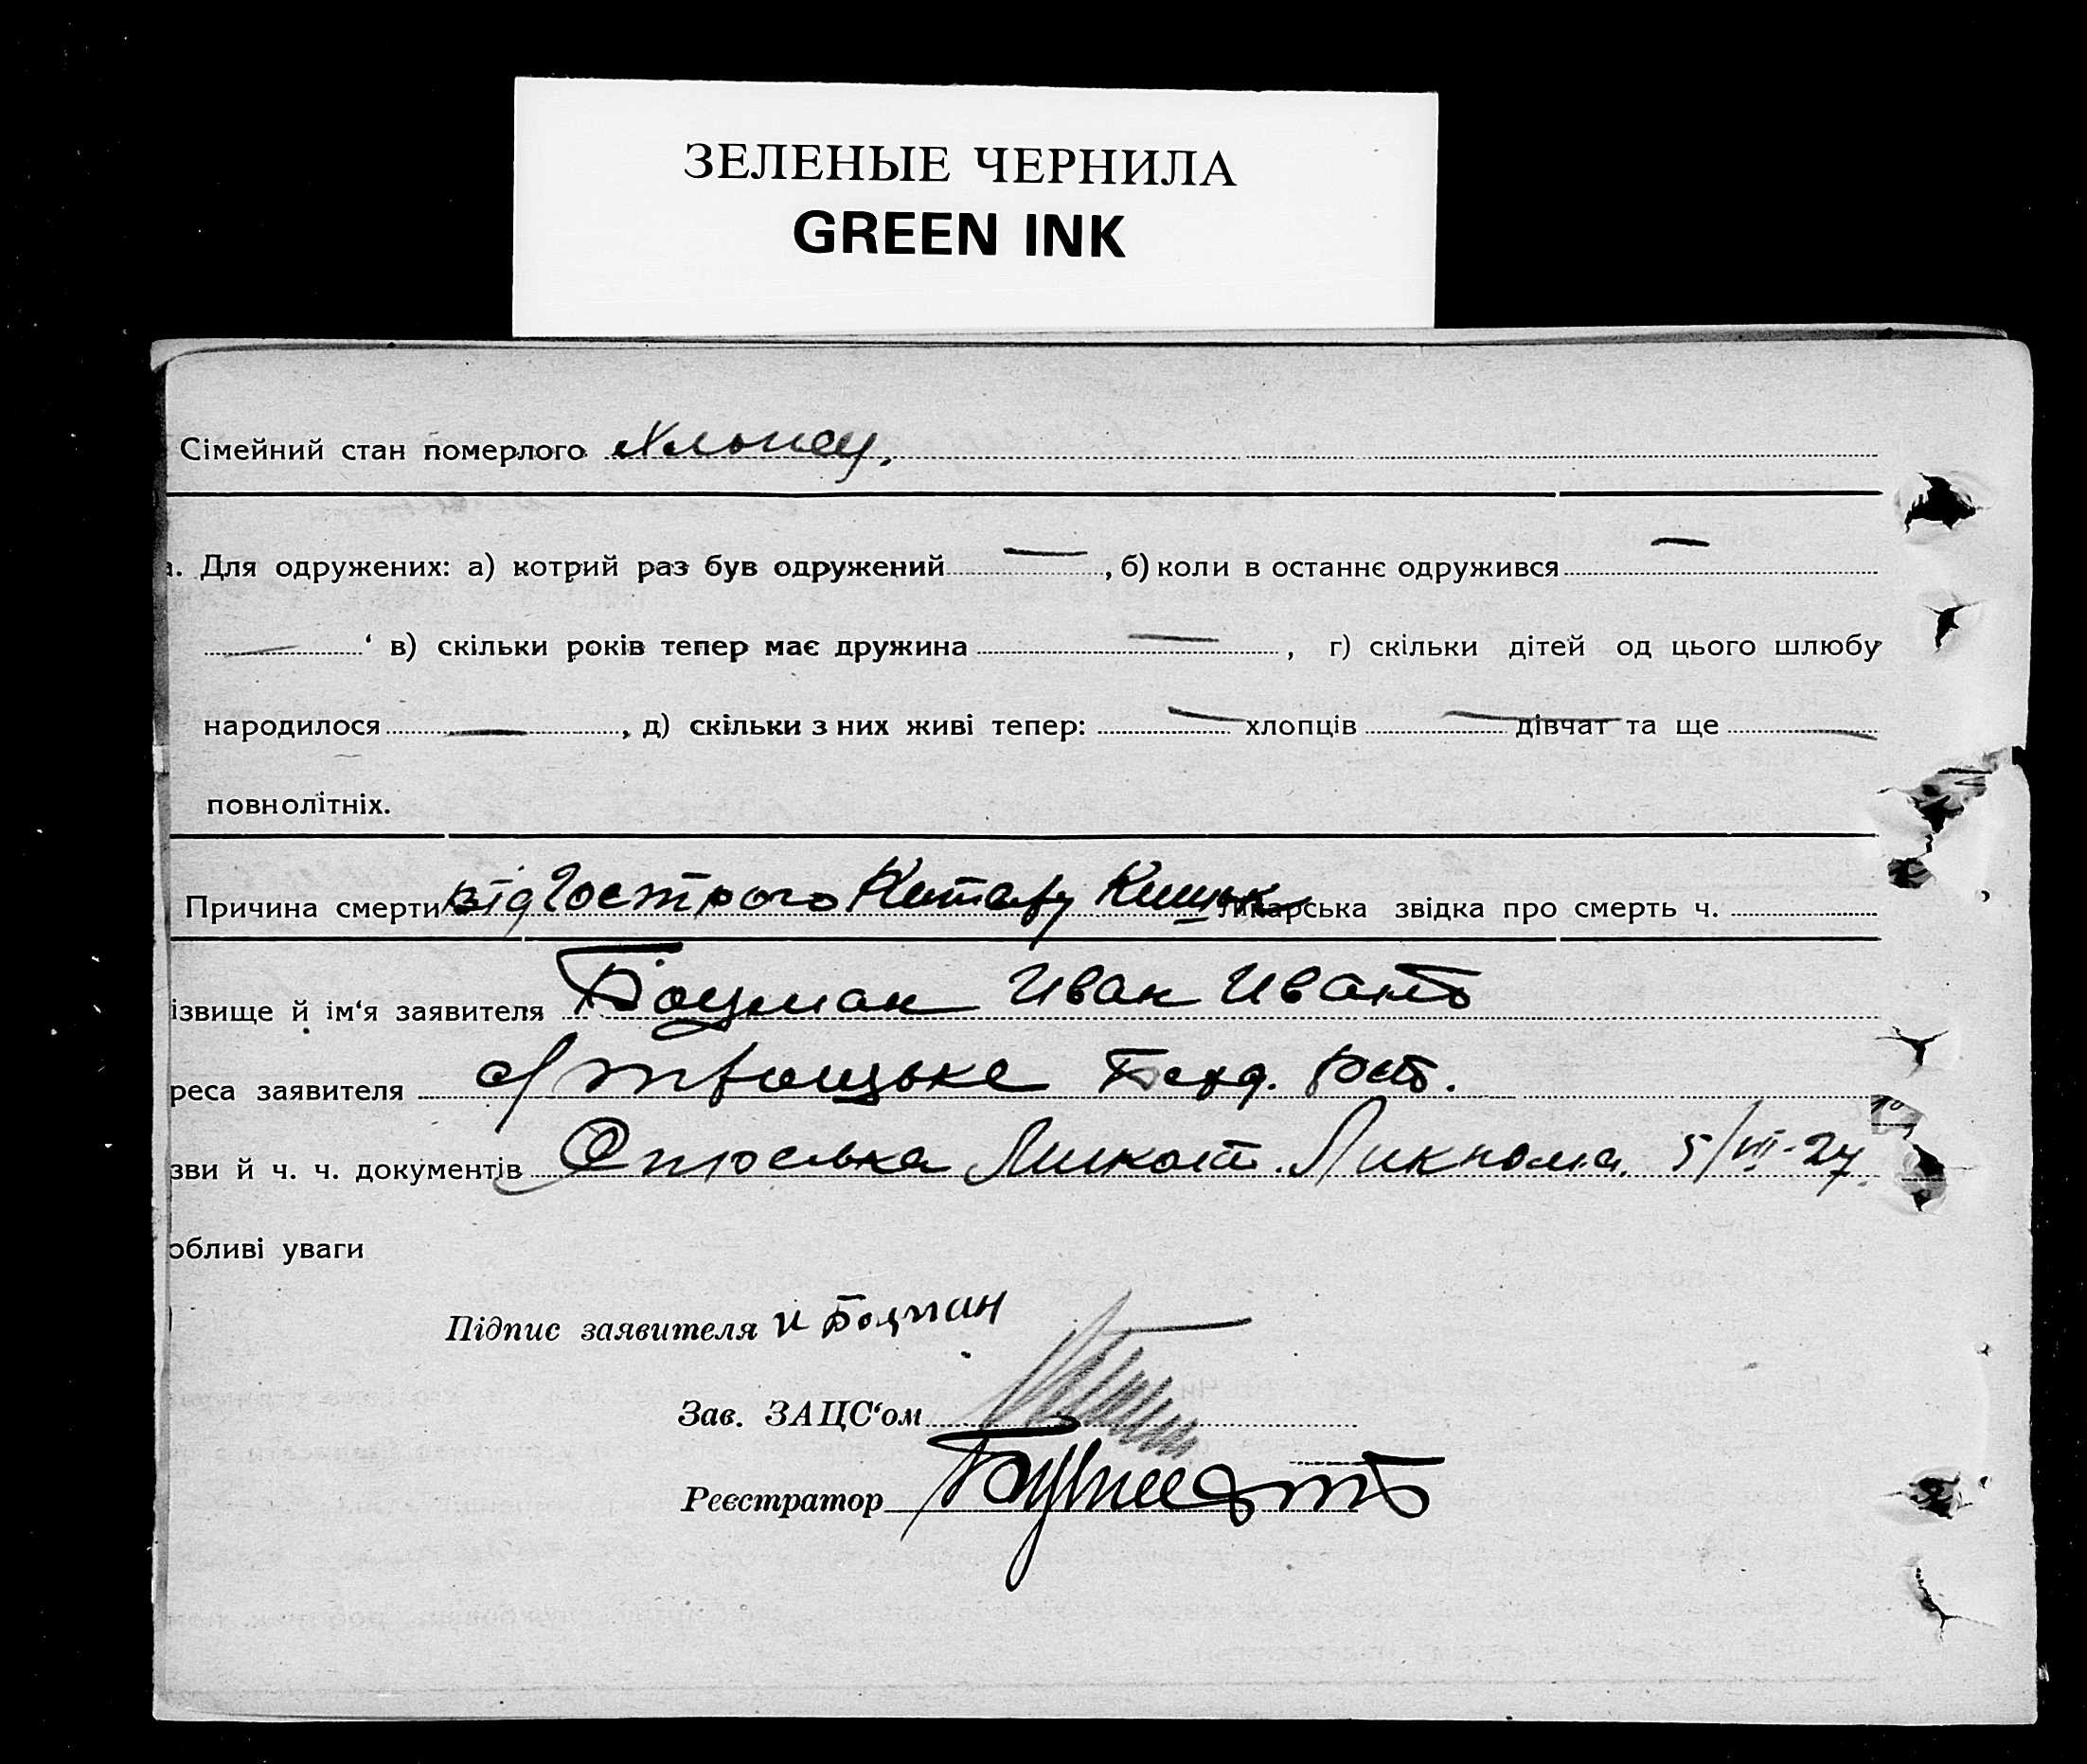 ЗЕЛЕНЫЕ ЧЕРНИЛА
GREEN INK
Сімейний стан померлого
Для одружених: а) котрий раз був одружений — , б) коли в останнє одружився —
— ‘ в) скільки років тепер має дружина — , г) скільки дітей од цього шлюбу
народилося — , д) скільки з них живі тепер: — хлопців — дівчат та ще —
повнолітніх.
Причина смерти від Гострого Катару Кишок Лікарська звідка про смерть ч.
ізвище й ім‘я заявителя Боцман Иван Иван
реса заявителя
зви й ч. ч. документів 5/VII-27
обливі уваги
Підпис заявителя И Боцман
Зав. ЗАЦС‘ом
Реєстратор